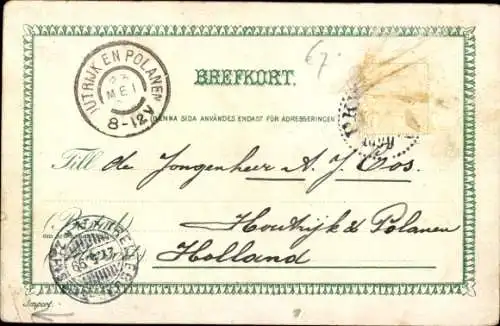 €7.-
HUTRIJK EN POLANEN
MEI
8-12V
BREFKORT.
(DENNA SIDA ANVÄNDES ENDAST FÖR ADRESSERINGEN
Till de Jongenheer A. J. Vos.
Houtrijk & Polanen
Holland
Import.